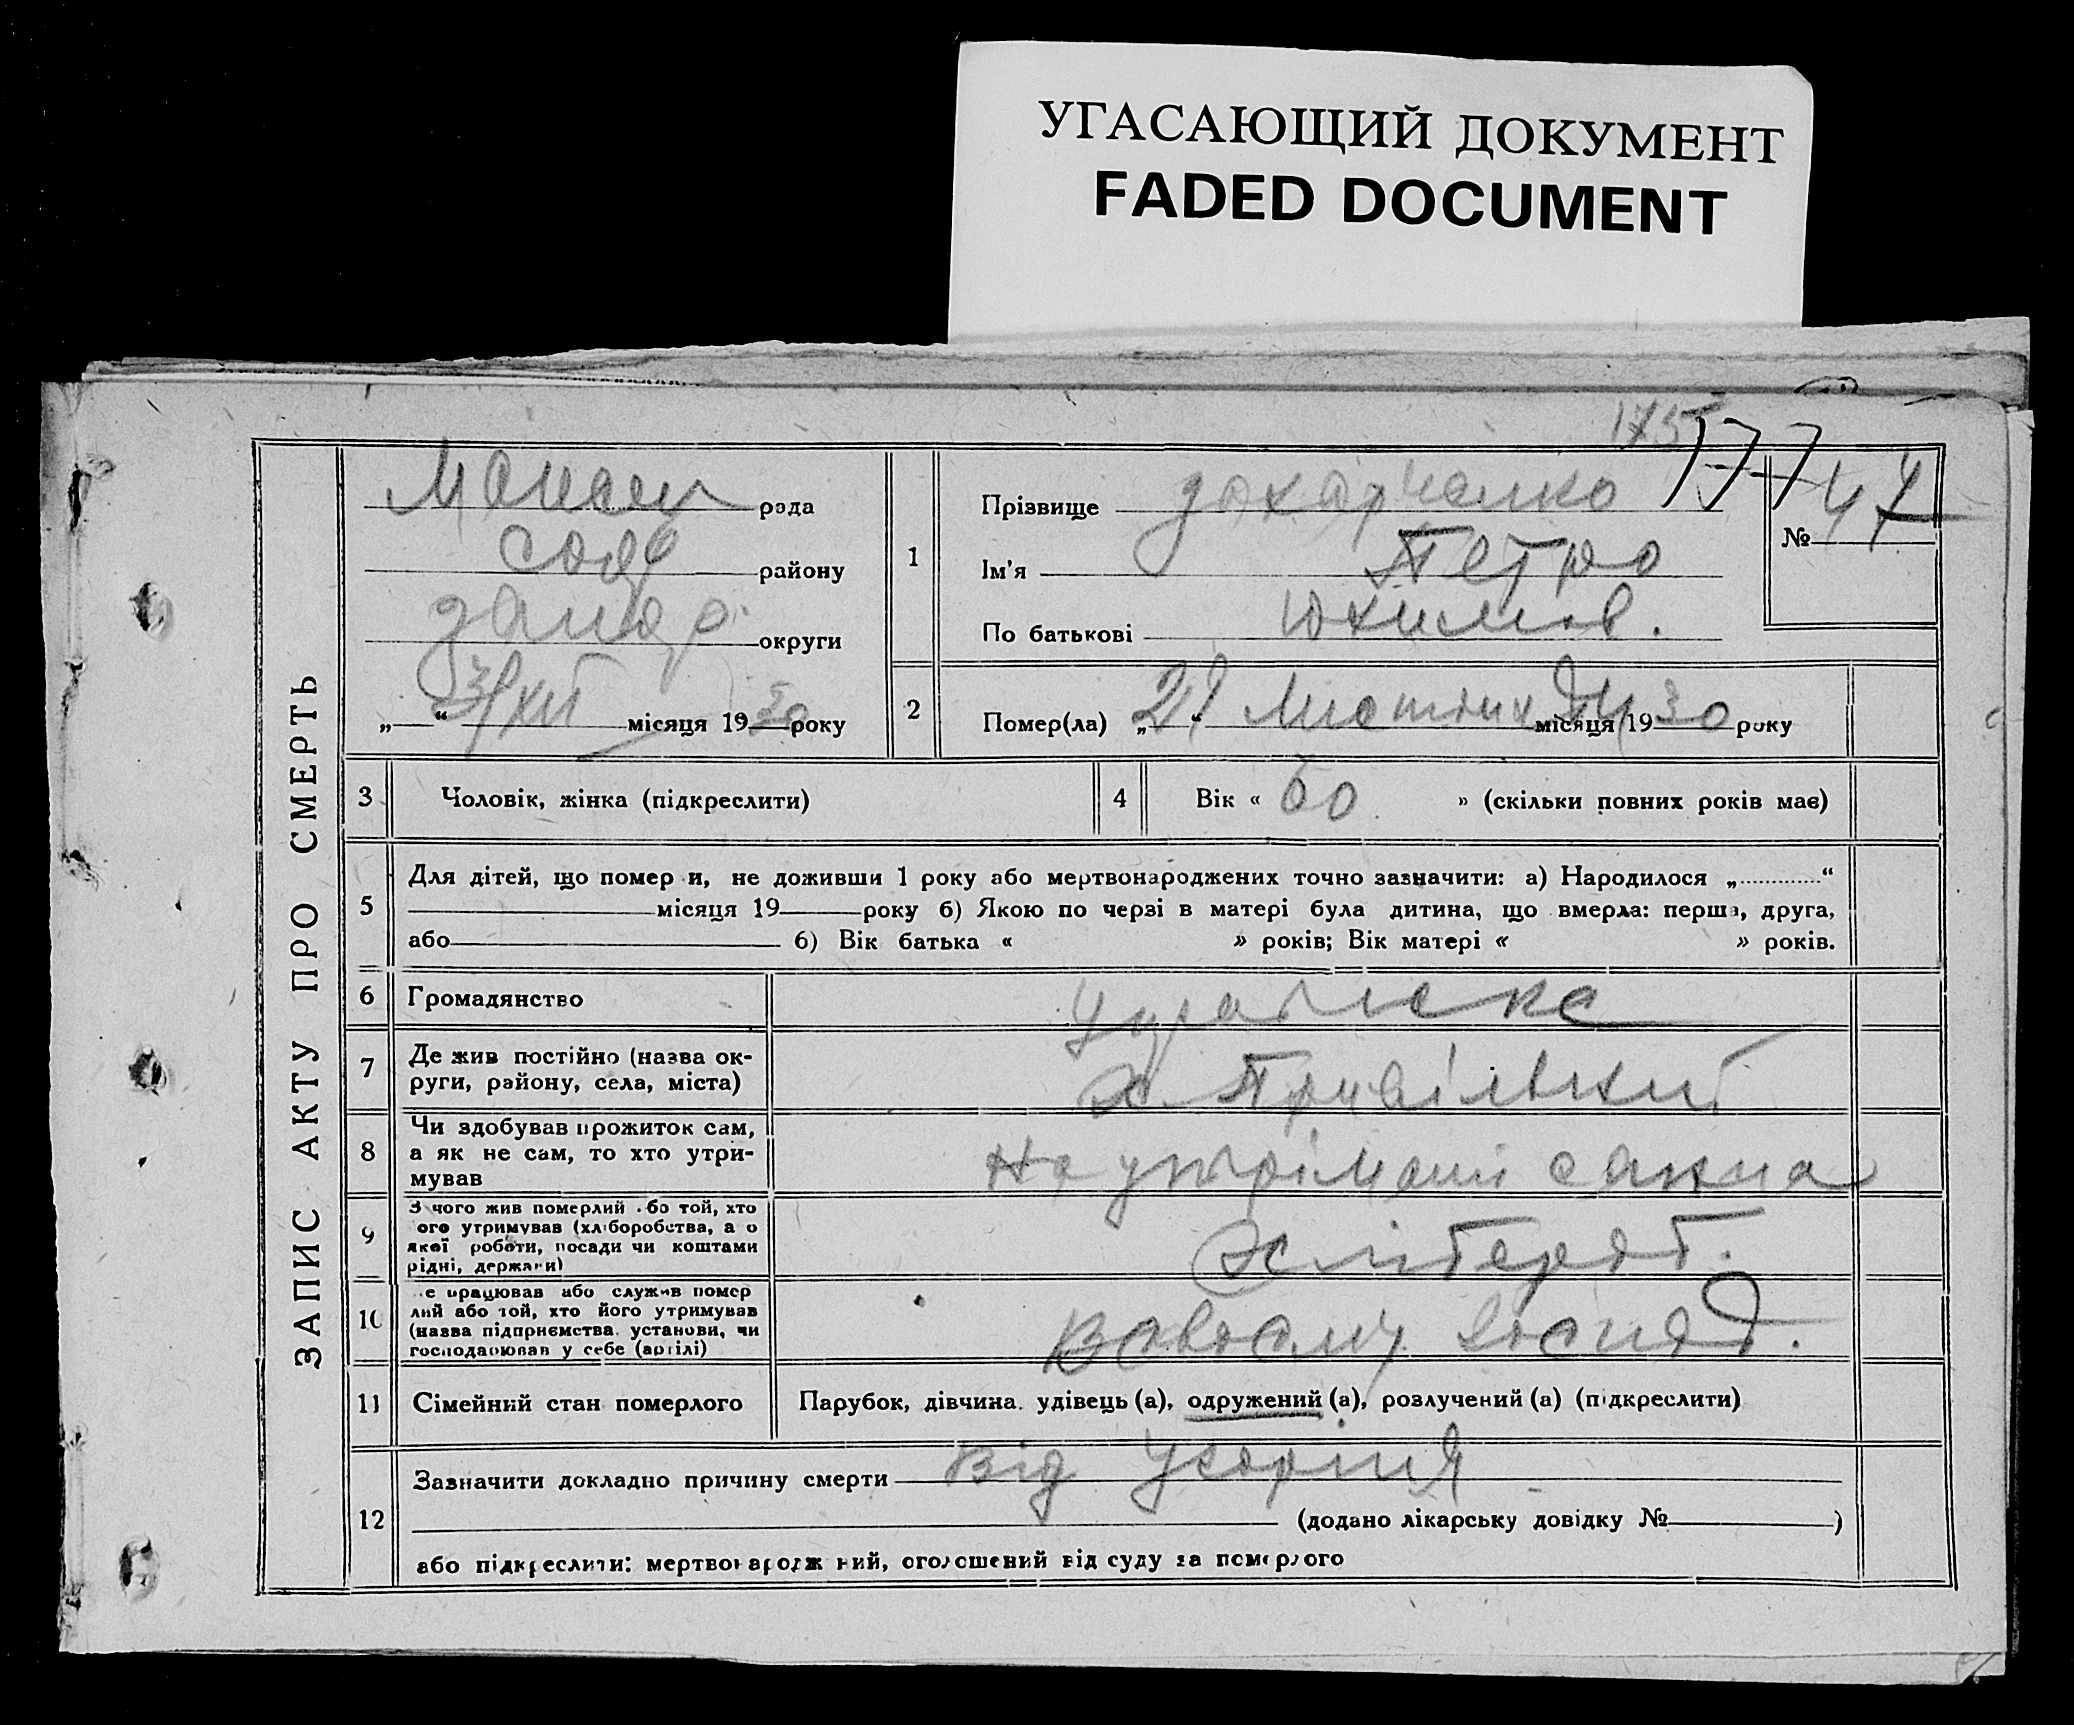 УГАСАЮЩИЙ ДОКУМЕНТ
FADED DOCUMENT
175
177
ЗАПИС АКТУ ПРО СМЕРТЬ
рада
району
округи
„ 3/XII “ місяця 1930 року
1
Прізвище Захарченко
Ім'я Петро
По батькові Юхимов.
№ 47
2
Помер(ла) „ 21 “ Листопад місяця 1930 року
3 Чоловік, жінка (підкреслити)
4 Вік « 60 » (скільки повних років має)
5
Для дітей, що помер и, не доживши 1 року або мертвонароджених точно зазначити: а) Народилося „ “
місяця 19 року б) Якою по черзі в матері була дитина, що вмерла: перша, друга,
або 6) Вік батька « » років; Вік матері « » років.
6 Громадянство
7 Де жив постійно (назва ок-
руги, району, села, міста)
х. Привільний
8 Чи здобував прожиток сам,
а як не сам, то хто утри-
мував
На утрімані
9
З чого жив померлий або той, хто
ого утримував (хліборобства, а о
якої роботи, посади чи коштами
рідні, держави)
Хлібороб.
10
е працював або служив помер
лий або той, хто його утримував
(назва підприємства, установи, чи
господарював у себе (артілі)
11 Сімейний стан померлого
Парубок, дівчина. удівець (а), одружений (а), розлучений (а) (підкреслити)
12
Зазначити докладно причину смерти Від
(додано лікарську довідку № )
або підкреслити: мертвонароджений, оголошений від суду за померлого